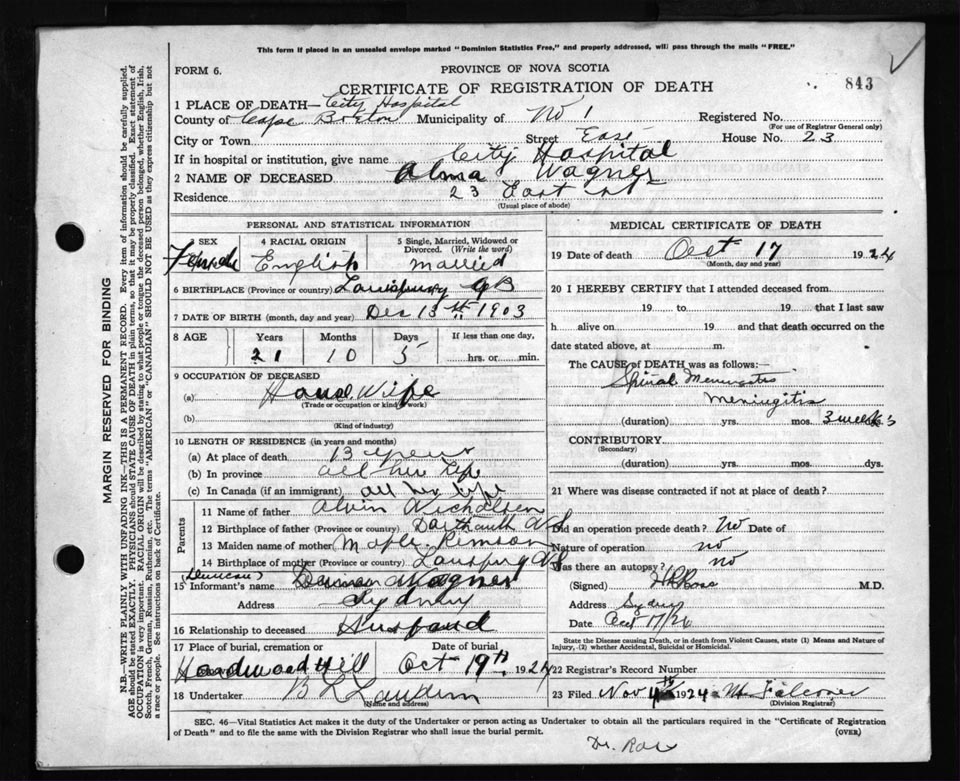 This form if placed in an unsealed envelope marked "Dominion Statistics Free," and properly addressed, will pass through the mails "FREE."
FORM 6.
PROVINCE OF NOVA SCOTIA
CERTIFICATE OF REGISTRATION OF DEATH
843
1 PLACE OF DEATH— City Hospital
County of Cape Breton Municipality of No 1 Registered No.
(For use of Registrar General only)
City or Town Street East House No. 23
If in hospital or institution, give name City Hospital
2 NAME OF DECEASED Alma Wagner
Residence 23 East St
(Usual place of abode)
PERSONAL AND STATISTICAL INFORMATION
SEX Female
4 RACIAL ORIGIN English
5 Single, Married, Widowed or Divorced. (Write the word) married
6 BIRTHPLACE (Province or country)
7 DATE OF BIRTH (month, day and year) Des 13th 1903
8 AGE Years Months Days If less than one day,
21 10 5 hrs. or min.
9 OCCUPATION OF DECEASED
(a) House Wife
(Trade or occupation or kind of work)
(b)
(Kind of industry)
10 LENGTH OF RESIDENCE (in years and months)
(a) At place of death 13 years
(b) In province all her life
(c) In Canada (if an immigrant) all her life
Parents
11 Name of father Alvin Nicholson
12 Birthplace of father (Province or country) Dartmouth N S
13 Maiden name of mother
14 Birthplace of mother (Province or country) N S
(Duncan)
15 Informant's name Wagner
Address Sydney
16 Relationship to deceased Husband
17 Place of burial, cremation or Date of burial
Hardwood Hill Oct 19th 1924
18 Undertaker
(Name and address)
MEDICAL CERTIFICATE OF DEATH
19 Date of death Oct 17 1924
(Month, day and year)
20 I HEREBY CERTIFY that I attended deceased from
19 to 19 that I last saw
h alive on 19 and that death occurred on
date stated above, at m.
The CAUSE OF DEATH was as follows:—
Spinal Meningitis
Meningitis
(duration) yrs. mos. 3 weeks
CONTRIBUTORY.
(Secondary)
(duration) yrs. mos. dys.
21 Where was disease contracted if not at place of death?
Did an operation precede death? no Date of
Nature of operation no
Was there an autopsy? no
(Signed) M.D.
Address Sydney
Date Oct 17/24
State the Disease causing Death, or in death from Violent Causes, state (1) Means and Nature of Injury, (2) whether Accidental, Suicidal or Homicidal.
22 Registrar's Record Number
23 Filed Nov 4th 1924 Falconer
(Division Registrar)
SEC. 46—Vital Statistics Act makes it the duty of the Undertaker or person acting as Undertaker to obtain all the particulars required in the "Certificate of Registration
of Death" and to file the same with the Division Registrar who shall issue the burial permit.
(OVER)
Dr.
MARGIN RESERVED FOR BINDING
N.B.—WRITE PLAINLY WITH UNFADING INK—THIS IS A PERMANENT RECORD. Every item of information should be carefully supplied.
AGE should be stated EXACTLY. PHYSICIANS should STATE CAUSE OF DEATH in plain terms, so that it may be properly classified. Exact statement of
OCCUPATION is very important. RACIAL ORIGIN will be described by stating to what people or tongue the deceased person belonged, whether English, Irish,
Scotch, French, German, Russian, Ruthenian, etc. The terms "AMERICAN" or "CANADIAN" SHOULD NOT BE USED as they express citizenship but not
a race or people. See instructions on back of Certificate.